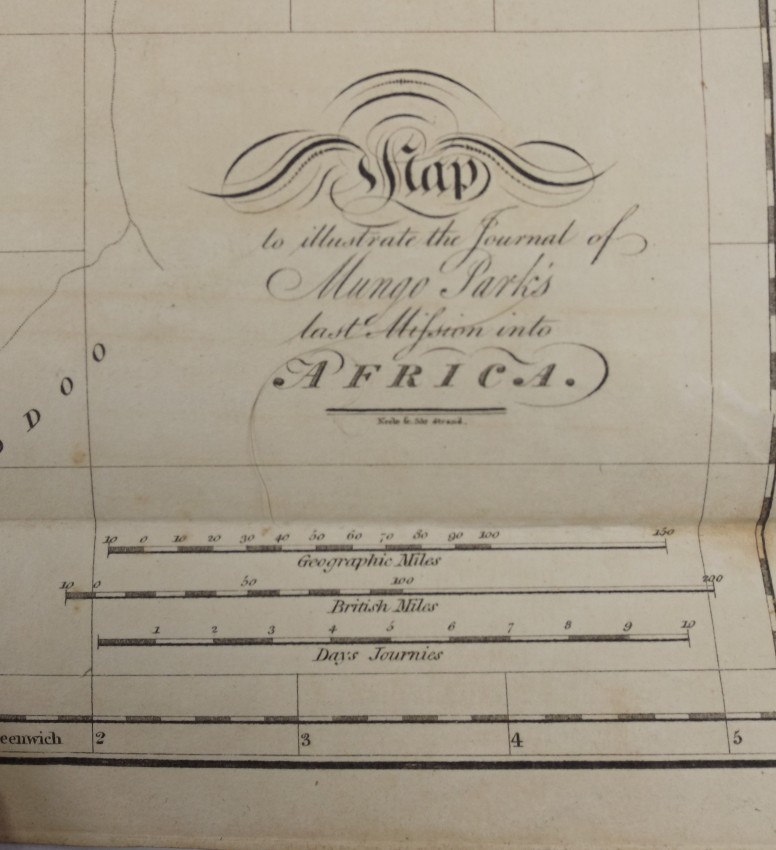 Map
to illustrate the Journal of
Mungo Park's
last Miſsion into
AFRICA.
Neele sc. 352 Strand.
O D O O
10 0 10 20 30 40 50 60 70 80 90 100 150
Geographic Miles
10 0 50 100 200
British Miles
1 2 3 4 5 6 7 8 9 10
Days Journies
eenwich 2 3 4 5